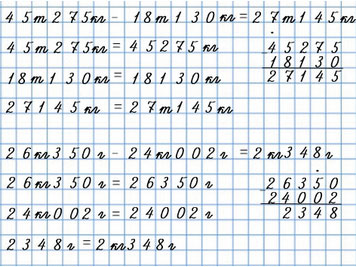 45т275кг - 18т130кг = 27т145кг
45т275кг = 45275кг
18т130кг = 18130кг
27145кг = 27т145кг
45275
18130
27145
26кг350г - 24кг002г = 2кг348г
26кг350г = 26350г
24кг002г = 24002г
2348г = 2кг348г
26350
24002
2348